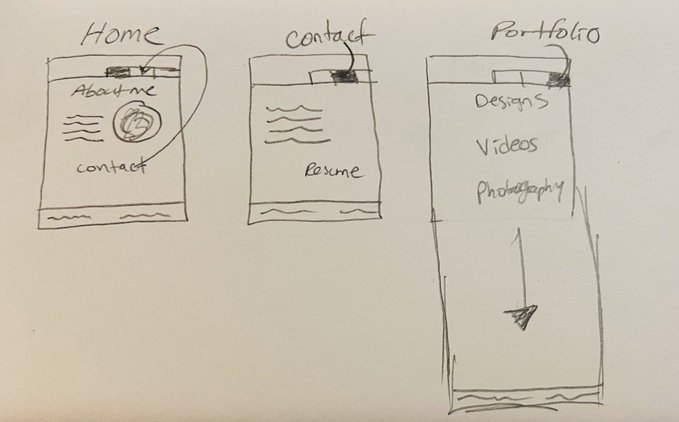 Home
About me
contact
contact
Resume
Portfolio
Designs
Videos
Photography